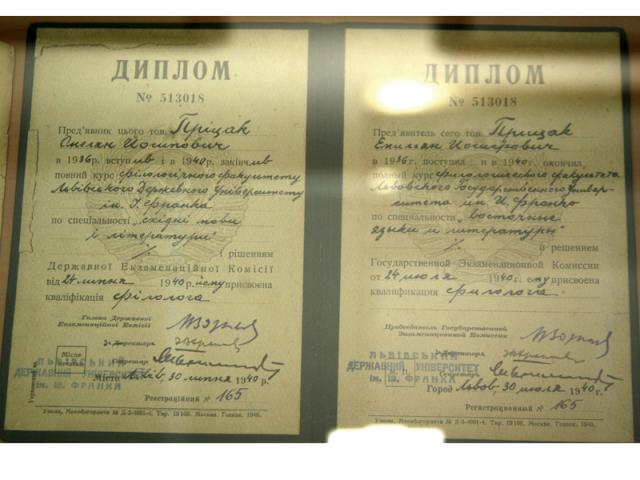 ДИПЛОМ
№ 513018
Пред'явник цього тов. Пріцак
Омелян Йосипович
в 1936 р. вступив і в 1940 р. закінчив
повний курс філологічного факультету
Львівського Державного Університету
ім. І. Франка
по спеціальності „східні мови
і літератури"
і рішенням
Державної Екзаменаційної Комісії
від 24 липня 1940 р. йому присвоєна
кваліфікація філолога
Голова Державної
Екзаменаційної Комісії
Директор
Секретар
Місце
ЛЬВІВСЬКИЙ
ДЕРЖАВНИЙ УНІВЕРСИТЕТ
ім. ІВ. ФРАНКА
Місто Львів, 30 липня 1940 р.
Реєстраційний № 165
ДИПЛОМ
№ 513018
Пред'явитель сего тов. Прицак
Емильян Иосифович
в 1936 г. поступил и в 1940 г. окончил
полный курс филологического факультета
Львовского Государственного Универ-
ситета им. И. Франко
по специальности „восточные
языки и литературы"
и решением
Государственной Экзаменационной Комиссии
от 24 июля 1940 г. ему присвоена
квалификация филолога
Председатель Государственной
Экзаменационной Комиссии
Директор
Секретарь
М. П.
ЛЬВІВСЬКИЙ
ДЕРЖАВНИЙ УНІВЕРСИТЕТ
ім. ІВ. ФРАНКА
Город Львов, 30 июля 1940 г.
Регистрационный № 165